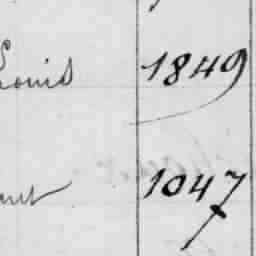 Louis 1849
1047